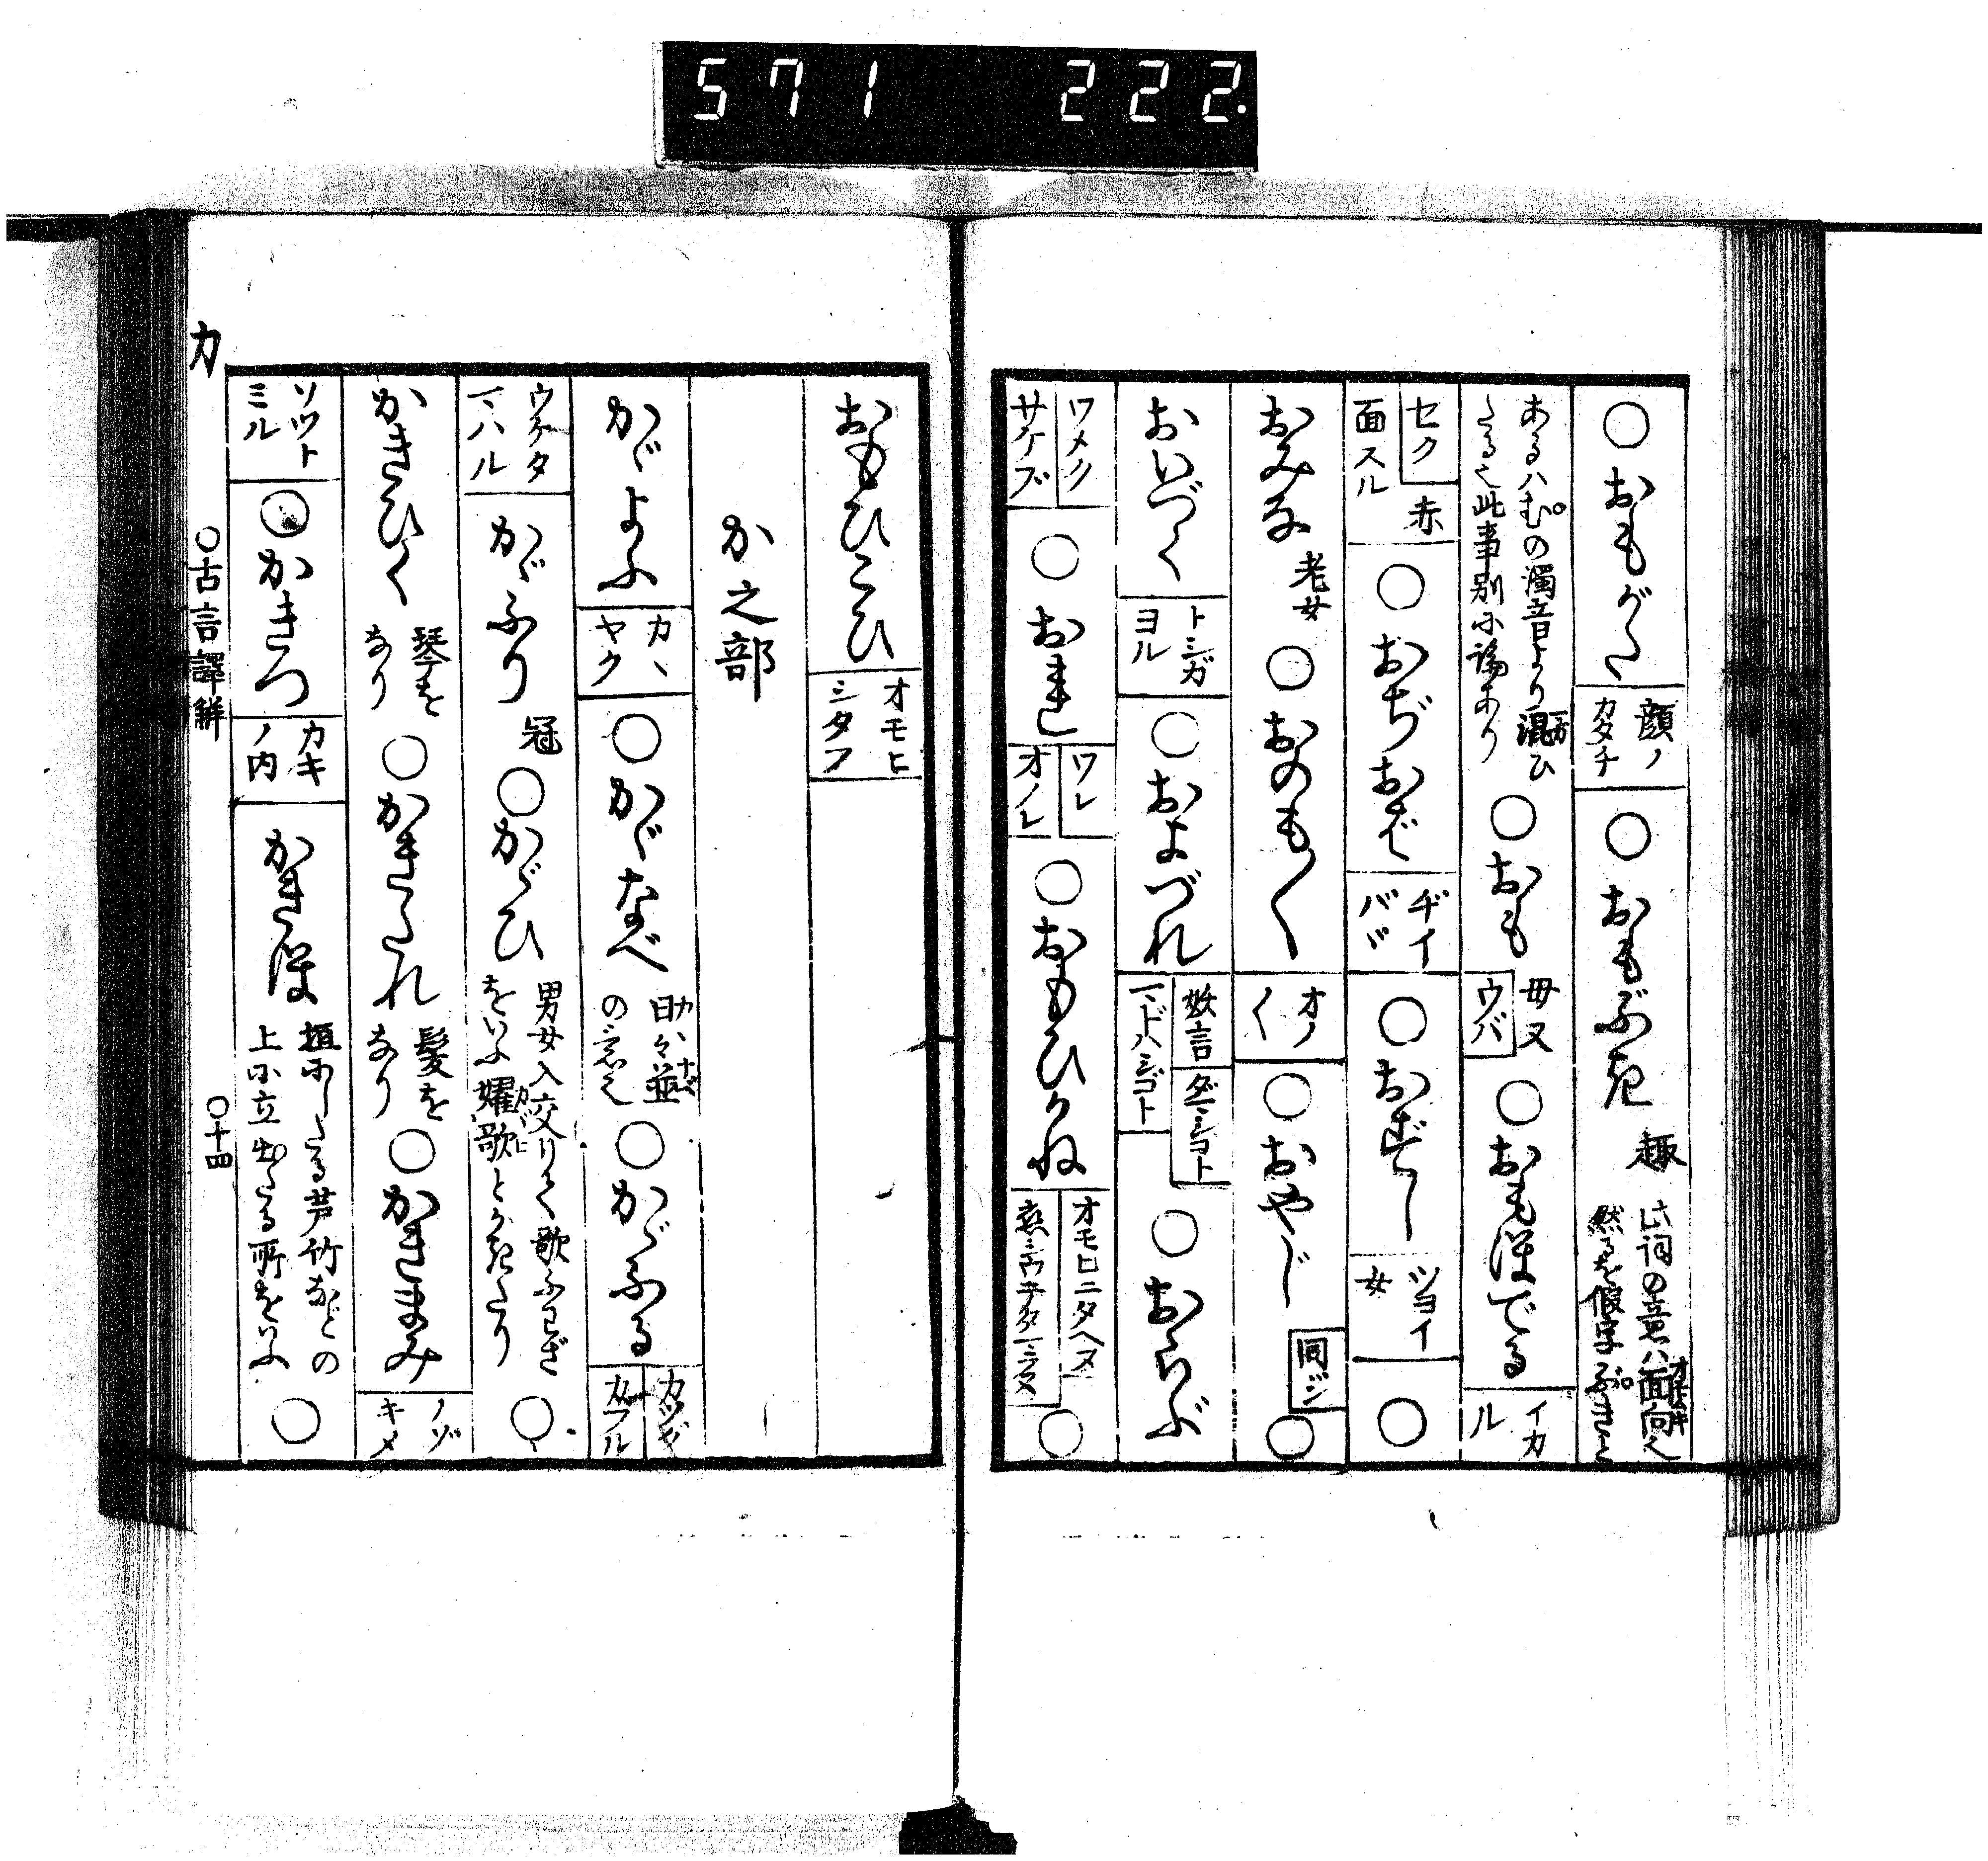 571 222.
○おもがた 顔ノカタチ ○おもぶき 趣 此詞の意ハ面向也然るを假字ぷきと
あるハむの濁音より混ひたる也此事別に論あり ○おも 母又ウバ ○おもほでる イカル
セク赤面スル ○おぢおば ヂイババ ○おずし ツヨイ女 ○
おみな 老女 ○おのも〱 オノ〱 ○おやじ 同ジ ○
おいづく トシガヨル ○およづれ 妖言 ○おらぶ
ワメク サケブ ○おれ ワレ オノレ ○おもひかね オモヒニタヘヌ ○
おもひこひ オモヒシタフ
か之部
かゞよふ カヽヤク ○かゞなべ 日々並の意也 ○かゞふる カブル
ウケタマハル かゞふり 冠 ○かゞひ 男女入交りて歌ふわざをいふ嬥歌とかきたり ○
かきひく 琴をなり ○かきたれ 髪をなり ○かきまみ ノゾキメ
ソツトミル ○かきつ カキノ内 かきほ 垣にしたる芦竹などの上に立出たる所をいふ ○
カ ○古言譯解 ○十四